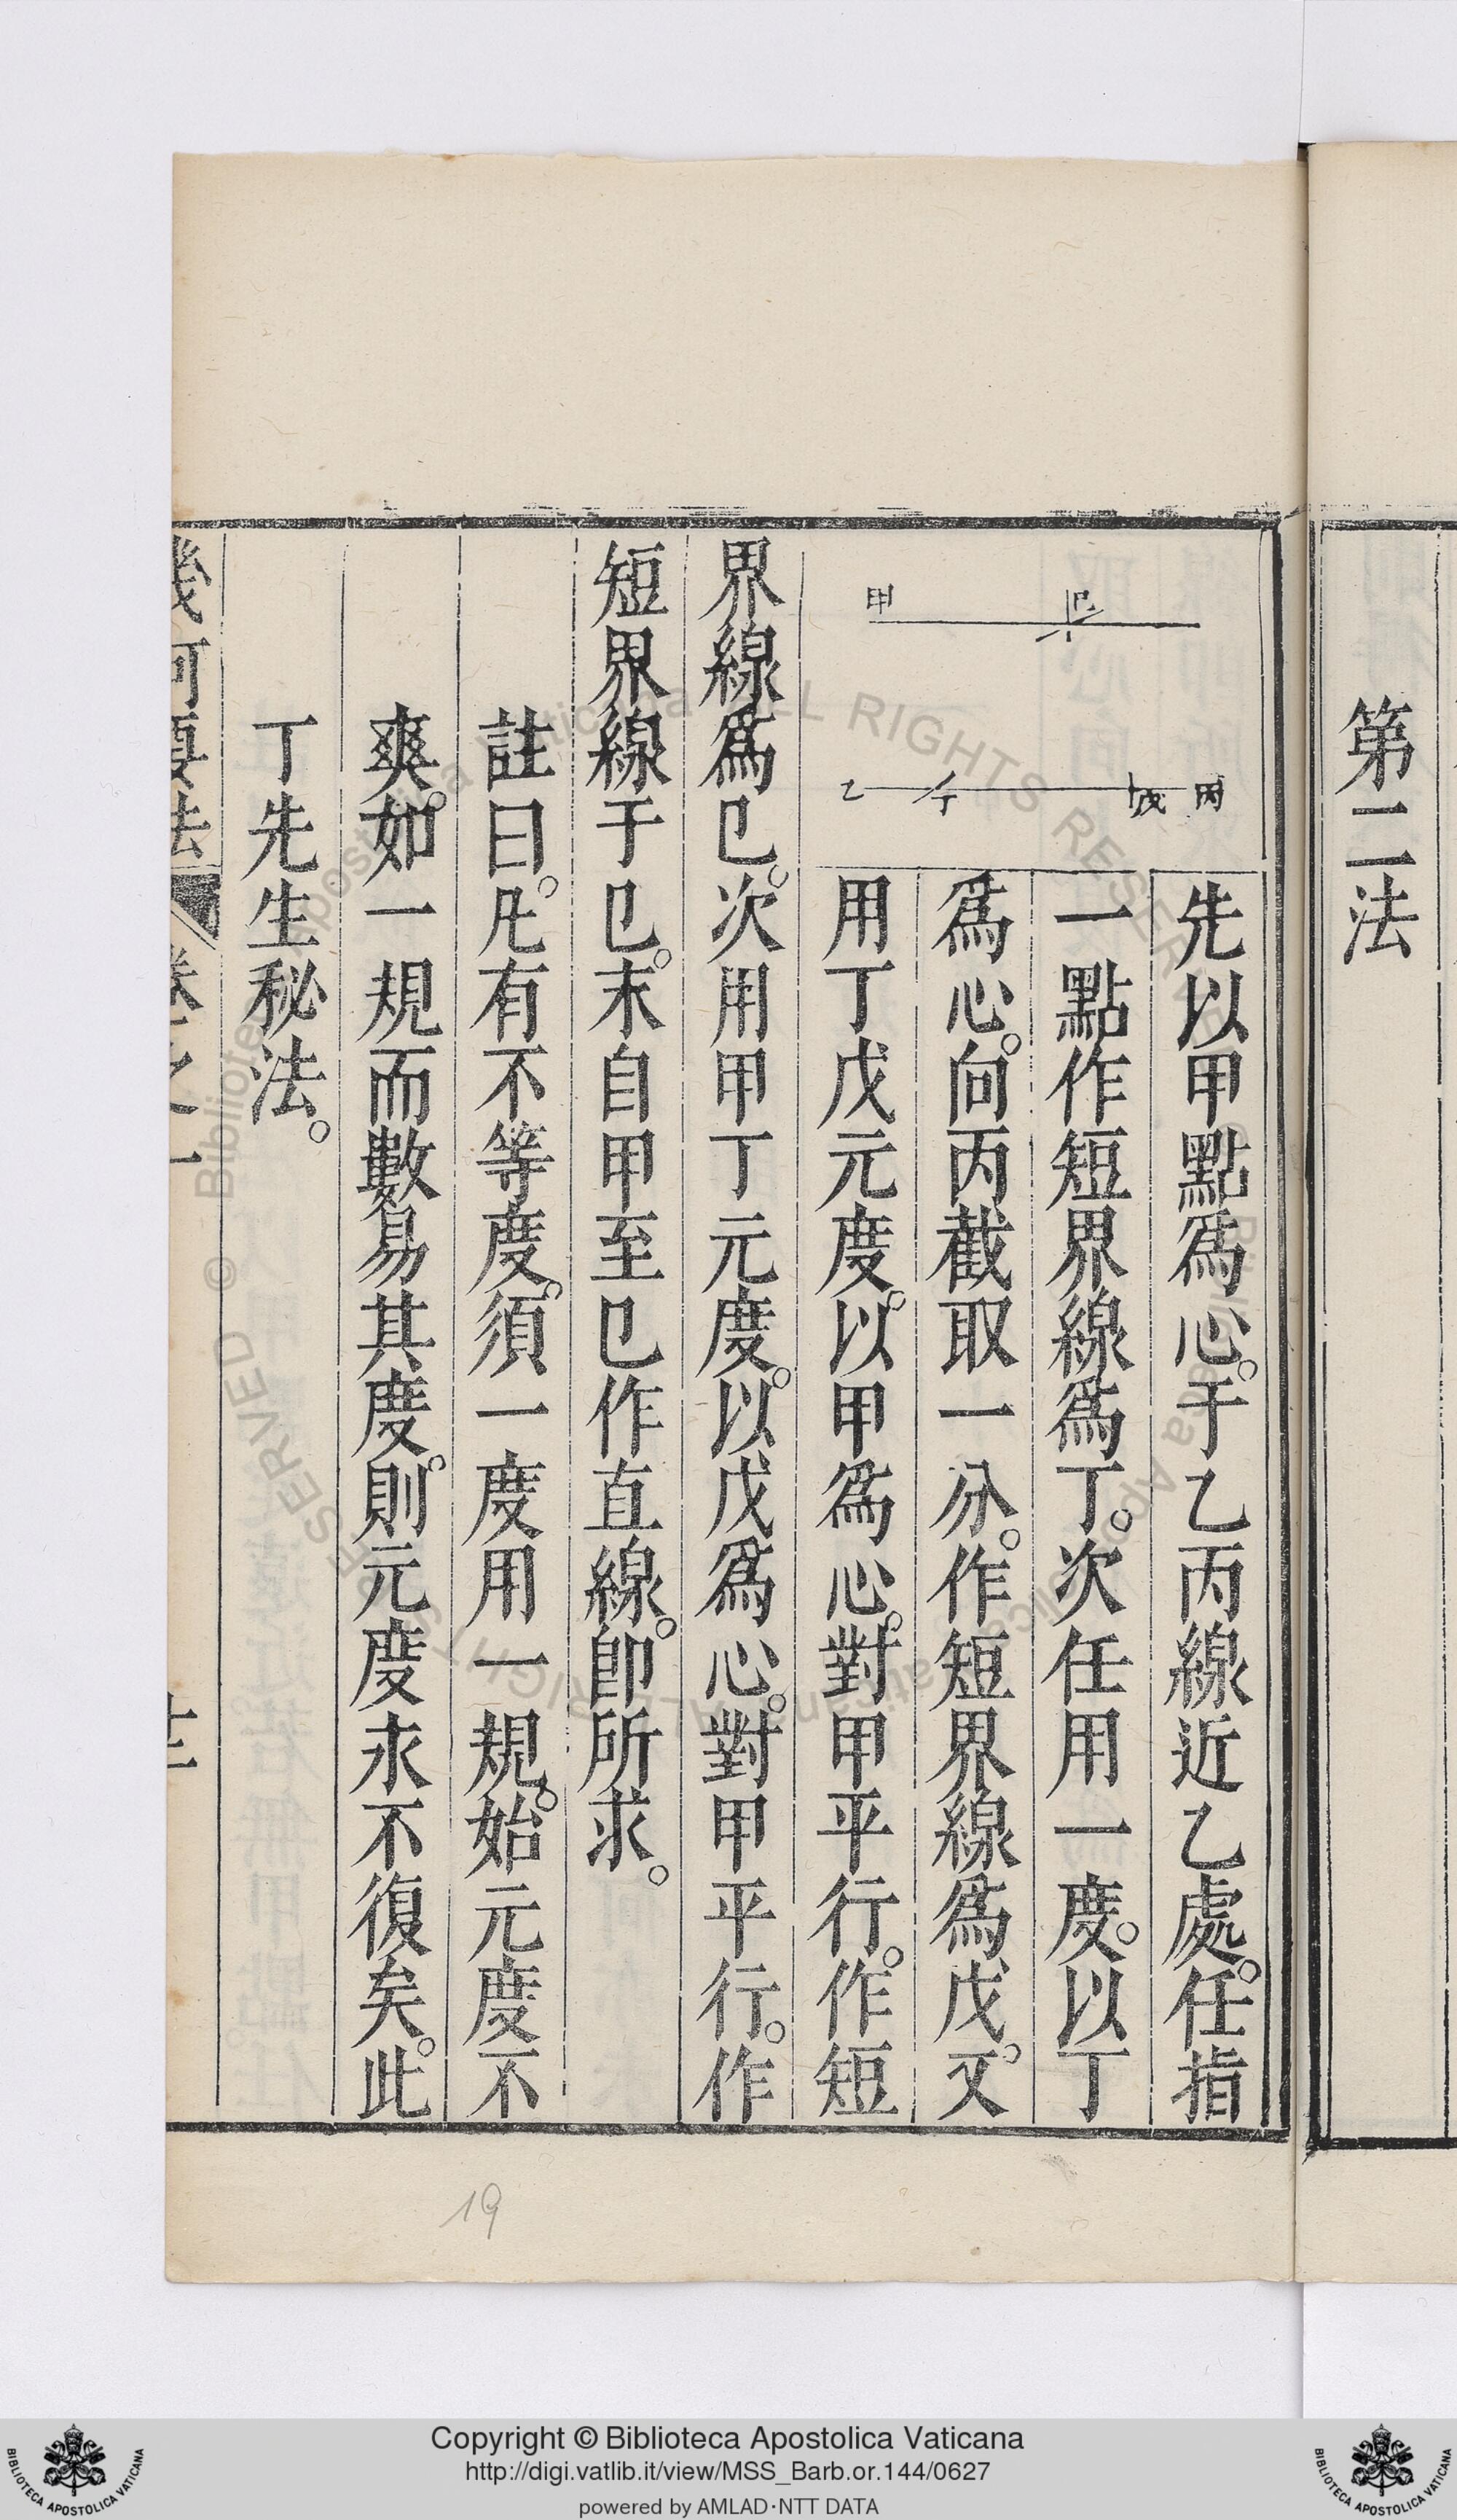 第二法
甲
己
丙
戊
丁
乙
先以甲點爲心。于乙丙線近乙處。任指
一點作短界線爲丁。次任用一度。以丁
爲心。向丙截取一分。作短界線爲戊。又
用丁戊元度。以甲爲心。對甲平行。作短
界線爲己。次用甲丁元度。以戊爲心。對甲平行。作
短界線于己。末自甲至己作直線。卽所求。
註曰。凡有不等度。須一度用一規。始元度不
爽。如一規而數易其度。則元度永不復矣。此
丁先生秘法。
幾何要法 卷之一 十二
19
Biblioteca Apostolica Vaticana ALL RIGHTS RESERVED ©
Copyright © Biblioteca Apostolica Vaticana
http://digi.vatlib.it/view/MSS_Barb.or.144/0627
powered by AMLAD·NTT DATA
BIBLIOTECA APOSTOLICA VATICANA
BIBLIOTECA APOSTOLICA VATICANA